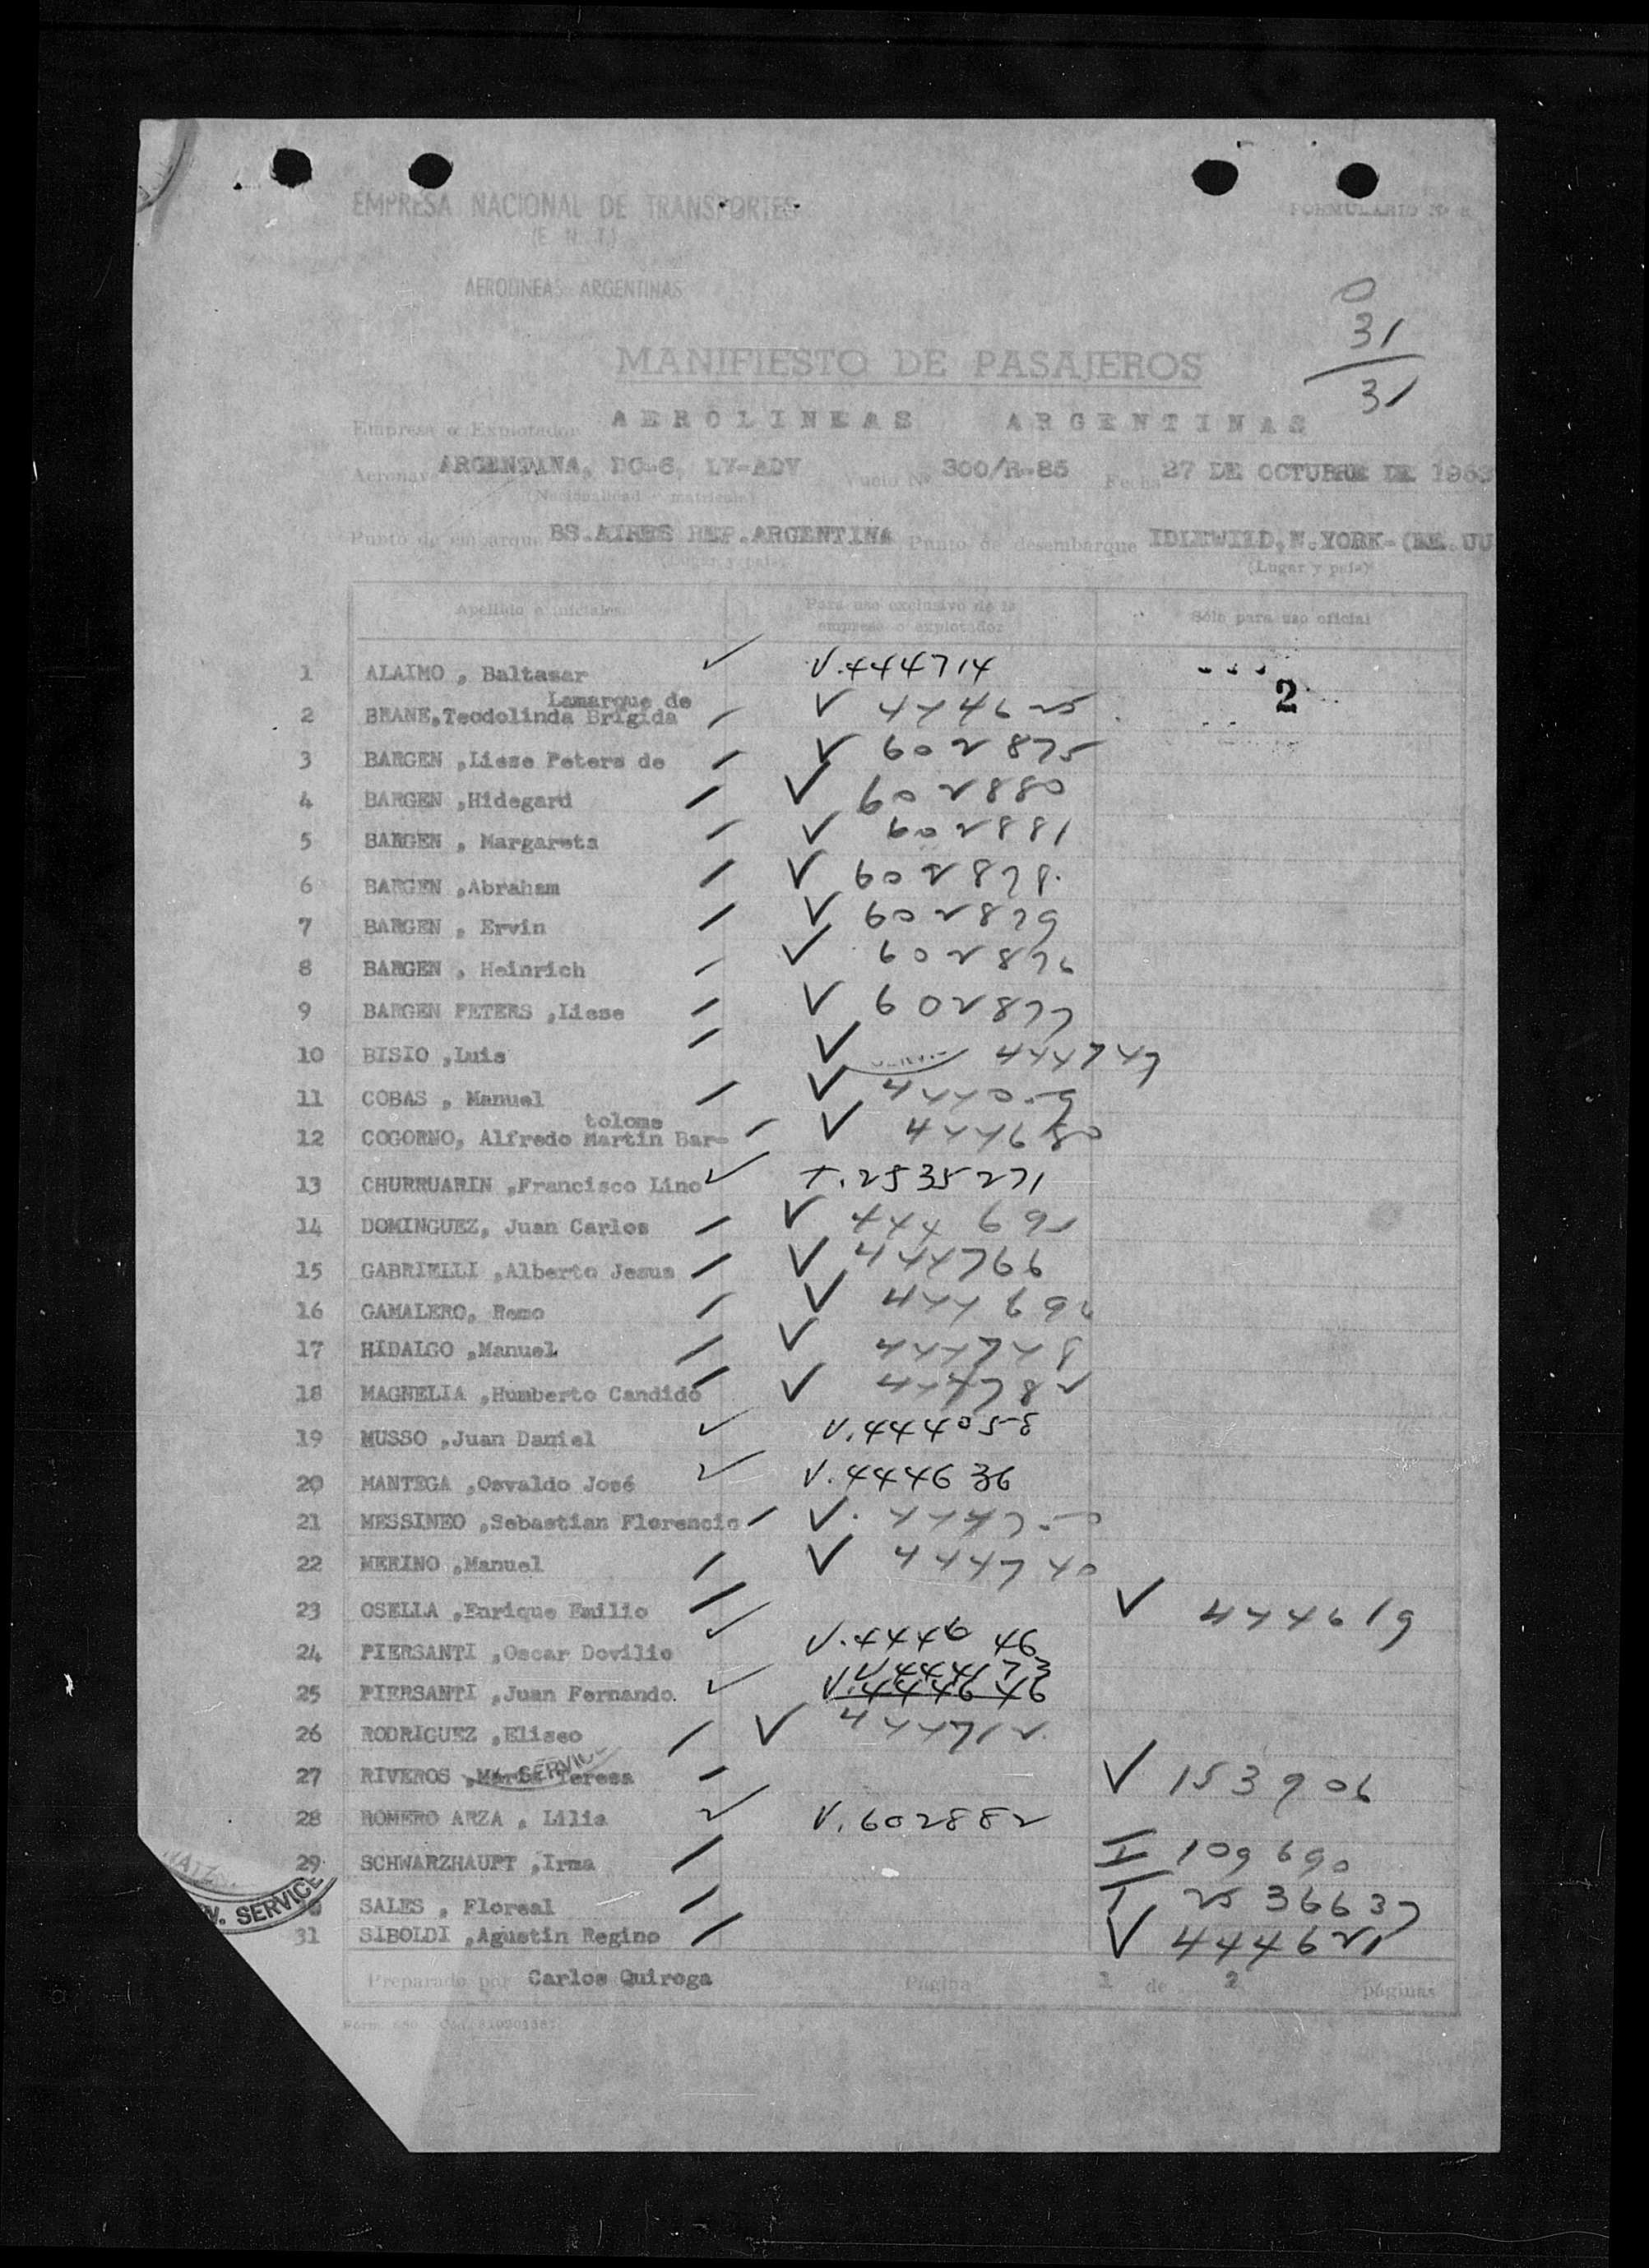 EMPRESA NACIONAL DE TRANSPORTES
(E. N. T.)
AEROLINEAS ARGENTINAS
FORMULARIO Nº
0
31
31
MANIFIESTO DE PASAJEROS
Empresa o Explotador AEROLINEAS ARGENTINAS
Aeronave ARGENTINA, DC-6, LV-ADV Vuelo Nº 300/R-85 Fecha 27 DE OCTUBRE DE 1963
(Nacionalidad matrícula)
Punto de embarque BS.AIRES REP.ARGENTINA Punto de desembarque IDLEWILD,N.YORK-(EE.UU
(Lugar y país) (Lugar y país)
Apellido e iniciales Para uso exclusivo de la empresa o explotador Sólo para uso oficial
2
1 ALAIMO , Baltasar V.444714
Lamarque de
2 BEANE,Teodolinda Brigida V 444625
3 BARGEN ,Liese Peters de V 602875
4 BARGEN ,Hidegard V 602880
5 BARGEN , Margareta V 602881
6 BARGEN ,Abraham V 602878
7 BARGEN , Ervin V 602879
8 BARGEN , Heinrich V 602876
9 BARGEN PETERS ,Liese V 602877
10 BISIO ,Luis V 444747
11 COBAS , Manuel V
tolome
12 COGORNO, Alfredo Martin Bar- V
13 CHURRUARIN ,Francisco Lino T.2535271
14 DOMINGUEZ, Juan Carlos V 444695
15 GABRIELLI ,Alberto Jesus V 444766
16 GAMALERO, Remo V
17 HIDALGO ,Manuel V
18 MAGNELIA ,Humberto Candido V
19 MUSSO ,Juan Daniel V.444053
20 MANTEGA ,Osvaldo José V.444636
21 MESSINEO ,Sebastian Florencio V.
22 MERINO ,Manuel V 444740
23 OSELLA ,Enrique Emilio V 444619
24 PIERSANTI ,Oscar Dovilio V.444646
25 PIERSANTI ,Juan Fernando
26 RODRIGUEZ ,Eliseo V 444712
27 RIVEROS ,Maria Teresa V 153906
28 ROMERO ARZA , Lilia V.602882
29 SCHWARZHAUPT ,Irma I 109690
SALES , Floreal T 2536637
31 SIBOLDI ,Agustin Regino V 444621
V. SERVICE
Preparado por Carlos Quiroga Página 1 de 2 páginas